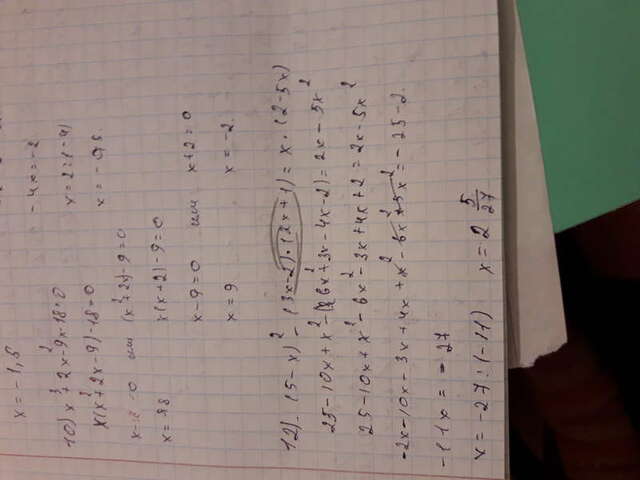 x = -1,5
- 4x = -2
x = 2 : (-4)
x = - 0,5.
10) x³ + 2x² - 9x - 18 = 0
x(x² + 2x - 9) - 18 = 0
x - 18 = 0 или (x² + 2x) - 9 = 0
x = 18
x(x + 2) - 9 = 0
x - 9 = 0 или x + 2 = 0
x = 9 x = -2.
12) - (5 - x)² - (3x - 2) · (2x + 1) = x · (2 - 5x)
25 - 10x + x² - (6x² + 3x - 4x - 2) = 2x - 5x²
25 - 10x + x² - 6x² - 3x + 4x + 2 = 2x - 5x²
-2x - 10x - 3x + 4x + x² - 6x² + 5x² = - 25 - 2.
- 11x = - 27
x = -27 : (-11) x = 2 5/27